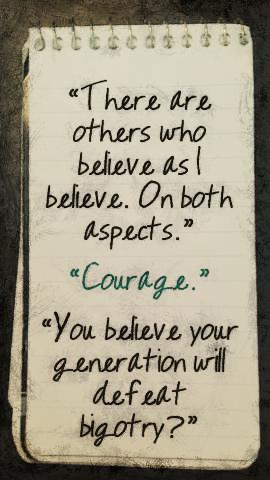 “There are
others who
believe as I
believe. On both
aspects.”
“Courage.”
“You believe your
generation will
defeat
bigotry?”